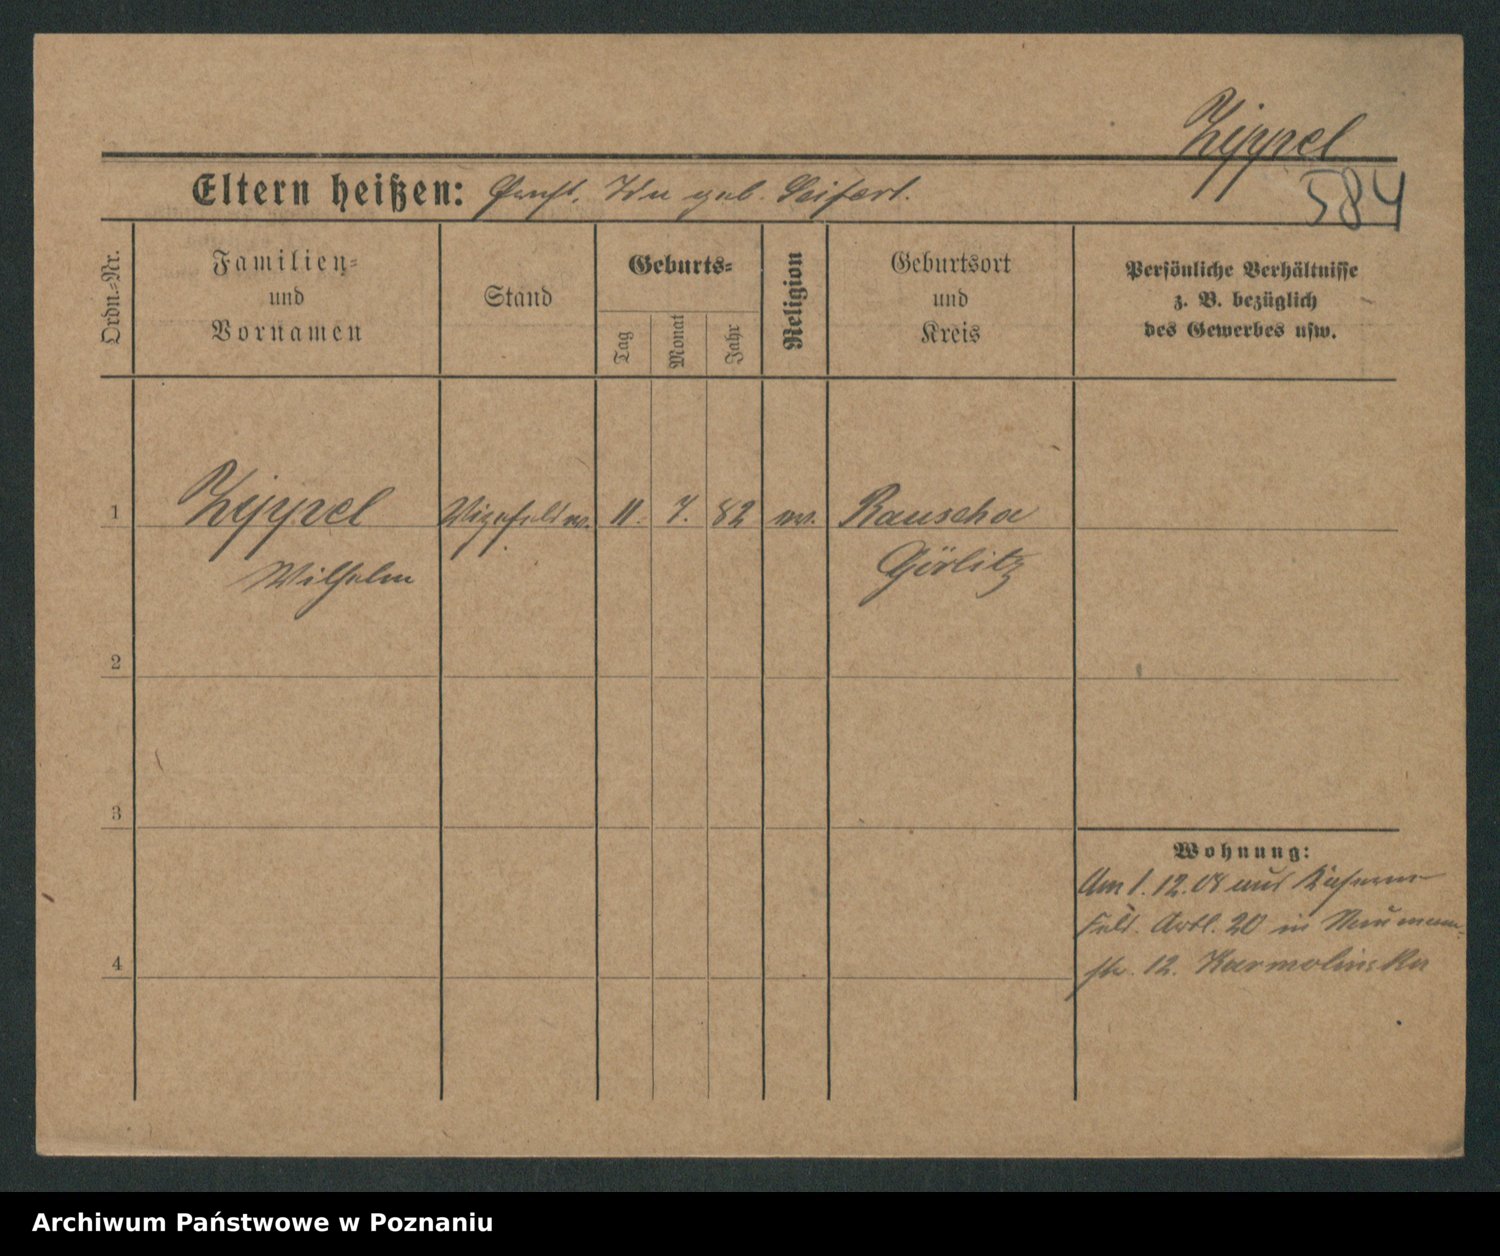 Zippel
584
Eltern heißen: Ernst, geb. Seifert.
Ordn.-Nr.
Familien-
und
Vornamen
Stand
Geburts-
Tag
Monat
Jahr
Religion
Geburtsort
und
Kreis
Persönliche Verhältnisse
z. B. bezüglich
des Gewerbes usw.
1 Zippel Vizefeldw. 11. 7. 82 ev. Rauscha
Wilhelm Görlitz
2
3
Wohnung:
Am 1. 12. 08 aus Kaserne
Feld. Artl. 20 in Naumann-
4
str. 12. Karmolinska
Archiwum Państwowe w Poznaniu